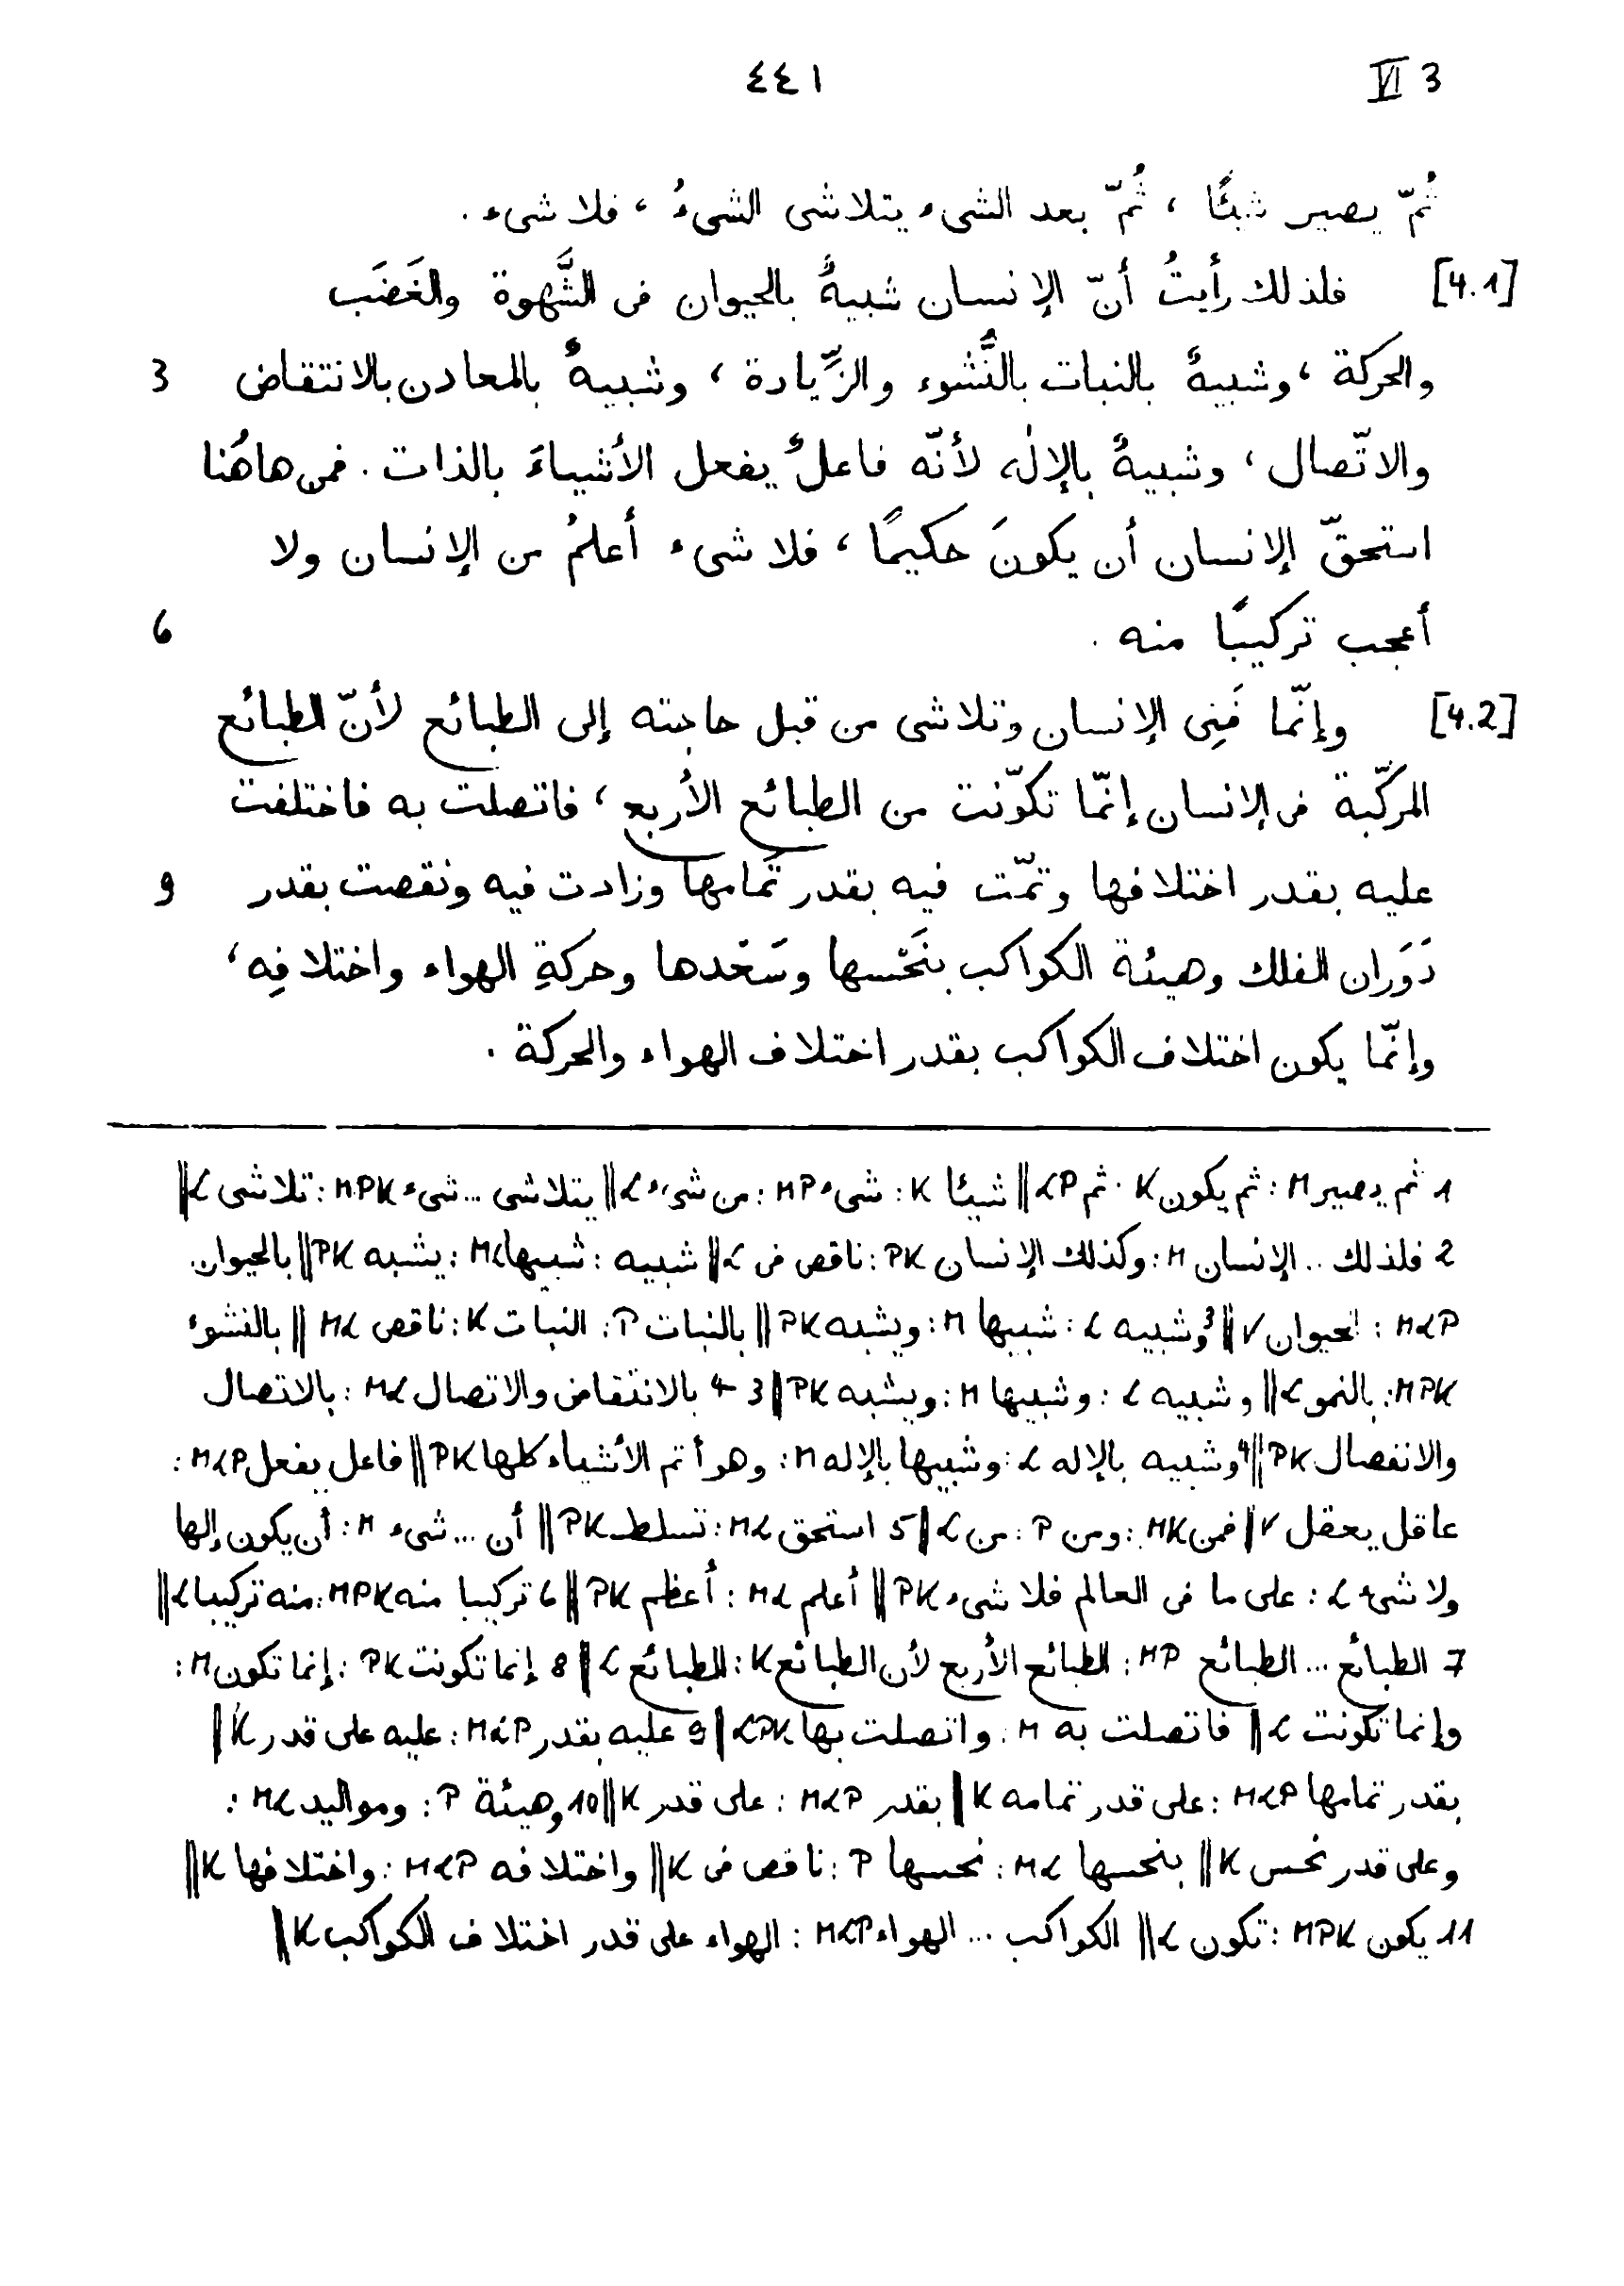 VI 3
٤٤١
ثُمّ يصير شيئًا ، ثُمّ بعد الشىء يتلاشى الشىءُ ، فلا شىء .
[4.1] فلذلك رأيتُ أنّ الإنسان شبيهٌ بالحيوان فى الشَّهوة والغَضَب
والحركة ، وشبيهٌ بالنبات بالنُّشوء والزِّيادة ، وشبيهٌ بالمعادن بالانتقاض 3
والاتّصال ، وشبيهٌ بالإلٰه لأنّه فاعلٌ يفعل الأشياءَ بالذات . فمن هاهُنا
استحقّ الإنسان أن يكونَ حكيمًا ، فلا شىء أعلمُ من الإنسان ولا
أعجب تركيبًا منه . 6
[4.2] وإنّما فَنِى الإنسان وتلاشى من قبل حاجته إلى الطبائع لأنّ الطبائع
المركّبة فى الإنسان إنّما تكوّنت من الطبائع الأربع ، فاتصلت به فاختلفت
عليه بقدر اختلافها وتمّت فيه بقدر تَمامها وزادت فيه ونقصت بقدر 9
دَوَران الفلك وهيئة الكواكب بنَحْسها وسَعْدها وحركةِ الهواء واختلافِه ،
وإنّما يكون اختلاف الكواكب بقدر اختلاف الهواء والحركة .
1 ثم يصير M : ثم يكون K ثم LP || شيئا K : شىء MP : من شىء L || يتلاشى ... شىء MPK : تلاشى L ||
2 فلذلك .. الإنسان M : وكذلك الإنسان PK : ناقص فى L || شبيه : شبيها ML : يشبه PK || بالحيوان
MLP : الحيوان V || 3 وشبيه L : شبيها M : ويشبه PK || بالنبات P : النبات K : ناقص ML || بالنشوء
MPK : بالنمو L || وشبيه L : وشبيها M : ويشبه PK || 3-4 بالانتقاض والاتصال ML : بالاتصال
والانفصال PK || 4 وشبيه بالإله L : وشبيها بالإله M : وهو أتم الأشياء كلها PK || فاعل يفعل MLP :
عاقل يعقل V || فمن MK : ومن P : من L || 5 استحق ML : تسلط PK || أن ... شىء M : أن يكون إلها
ولا شىء L : على ما فى العالم فلا شىء PK || أعلم ML : أعظم PK || 6 تركيبا منه MPK : منه تركيبا L ||
7 الطبائع ... الطبائع MP : الطبائع الأربع لأن الطبائع K : الطبائع L || 8 إنما تكونت PK : إنما تكون M :
وإنما تكونت L || فاتصلت به M : واتصلت بها LPK || 9 عليه بقدر MLP : عليه على قدر K ||
بقدر تمامها MLP : على قدر تمامه K || بقدر MLP : على قدر K || 10 وهيئة P : ومواليد ML :
وعلى قدر نحس K || بنحسها ML : نحسها P : ناقص فى K || واختلافه MLP : واختلافها K ||
11 يكون MPK : تكون L || الكواكب ... الهواء MLP : الهواء على قدر اختلاف الكواكب K ||